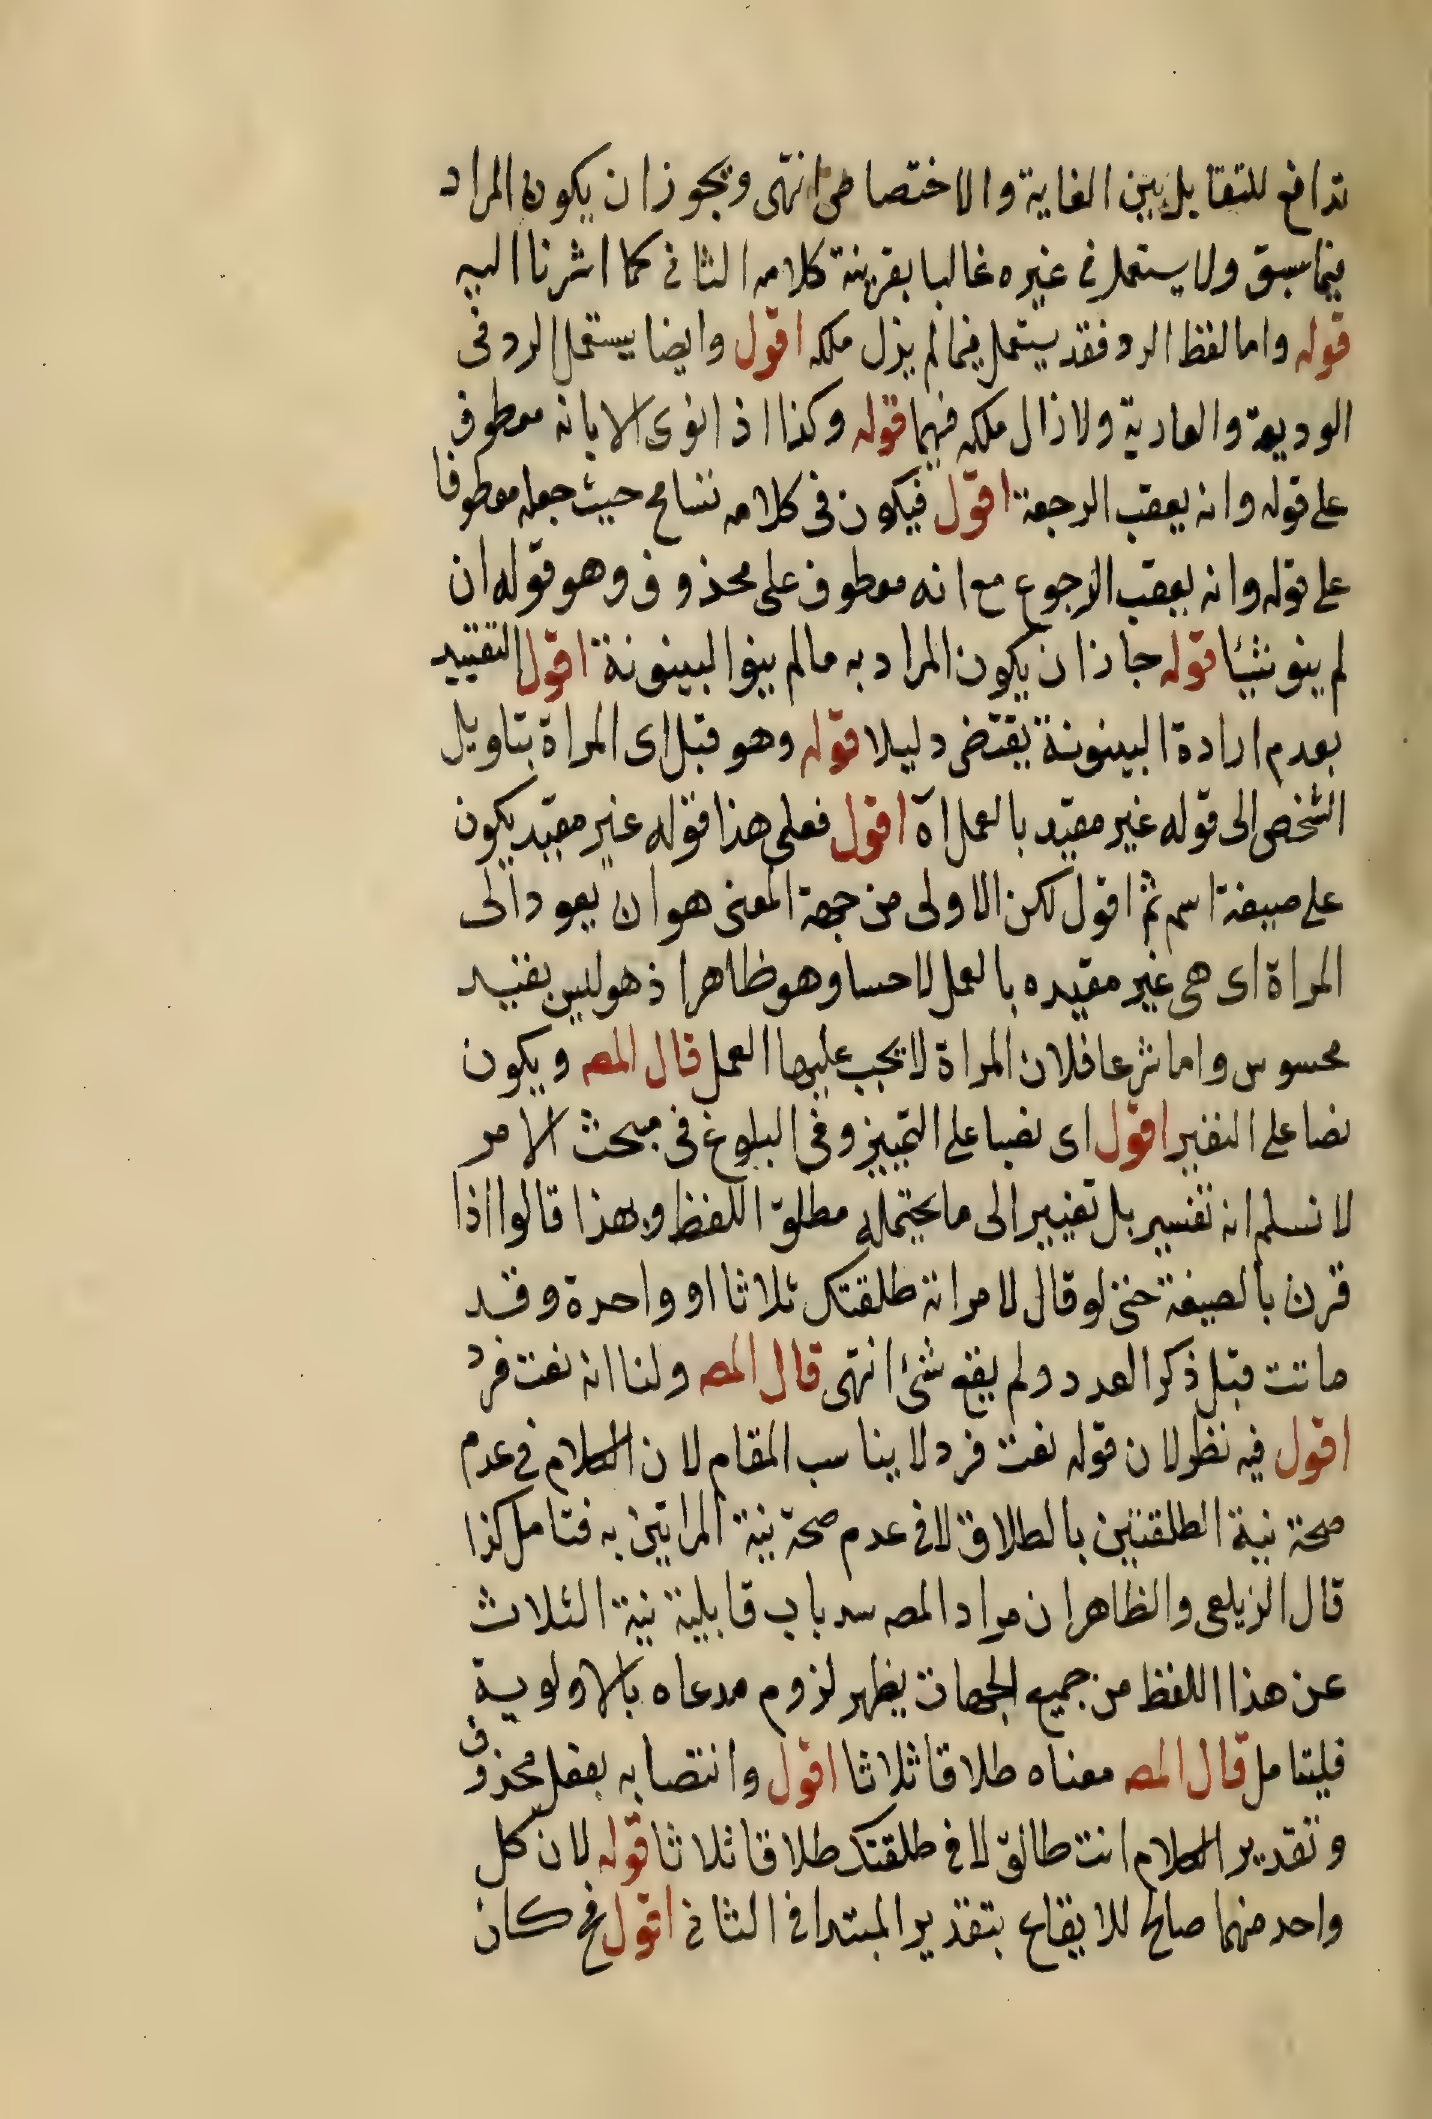 تدافع للتقابل بين الغاية والاختصاص انتهى ويجوز ان يكون المراد
فيما سبق ولا يستعمل في غيره غالبا بقرينة كلامه الثاني كما اشرنا اليه
قوله واما لفظ الرد فقد يستعمل فيما لم يزل ملكه اقول وايضا يستعمل الرد فى
الوديعة والعارية ولا زال ملكه فيهما قوله وكذا اذا نوى الابانة معطوف
على قوله وانه يعقب الرجعة اقول فيكون فى كلامه تسامح حيث جعله معطوفا
على قوله وانه يعقب الرجوع مع انه معطوف على محذوف وهو قوله ان
لم ينو شيئا قوله جاز ان يكون المراد به ما لم ينو البينونة اقول التقييد
بعدم ارادة البينونة يقتضى دليلا قوله وهو قبل اى المراة بتاويل
الشخص الى قوله غير مقيد بالعمل اه اقول فعلى هذا قوله غير مقيد يكون
على صيغة اسم ثم اقول لكن الاولى من جهة المعنى هو ان يعود الى
المراة اى هى غير مقيده بالعمل لا حسا وهو ظاهر اذ هو ليس بقيد
محسوس واما شرعا فلان المراة لا يجب عليها العمل قال المصه ويكون
نصا على التفير اقول اى نصبا على التمييز وفى البلوغ فى مبحث الامر
لا نسلم انه تفسير بل تغيير الى ما يحتمله مطلق اللفظ وبهذا قالوا اذا
قرن بالصيغة حتى لو قال لامراته طلقتك ثلاثا او واحدة وقد
ماتت قبل ذكر العدد ولم يقع شئ انتهى قال المصه ولنا انه نعت فرد
اقول فيه نظر لان قوله نعت فرد لا يناسب المقام لان الكلام في عدم
صحة نية الطلقتين بالطلاق لا في عدم صحة نية المراتين به فتامل كذا
قال الزيلعى والظاهر ان مراد المصه سد باب قابلية نية الثلاث
عن هذا اللفظ من جميع الجهات يظهر لزوم مدعاه بالاولوية
فليتامل قال المصه معناه طلاقا ثلاثا اقول وانتصابه بفعل محذوف
وتقدير الكلام انت طالق لا في طلقتك طلاقا ثلاثا قوله لان كل
واحد منهما صالح للايقاع بتقدير المبتدا في الثاني اقول فح كان